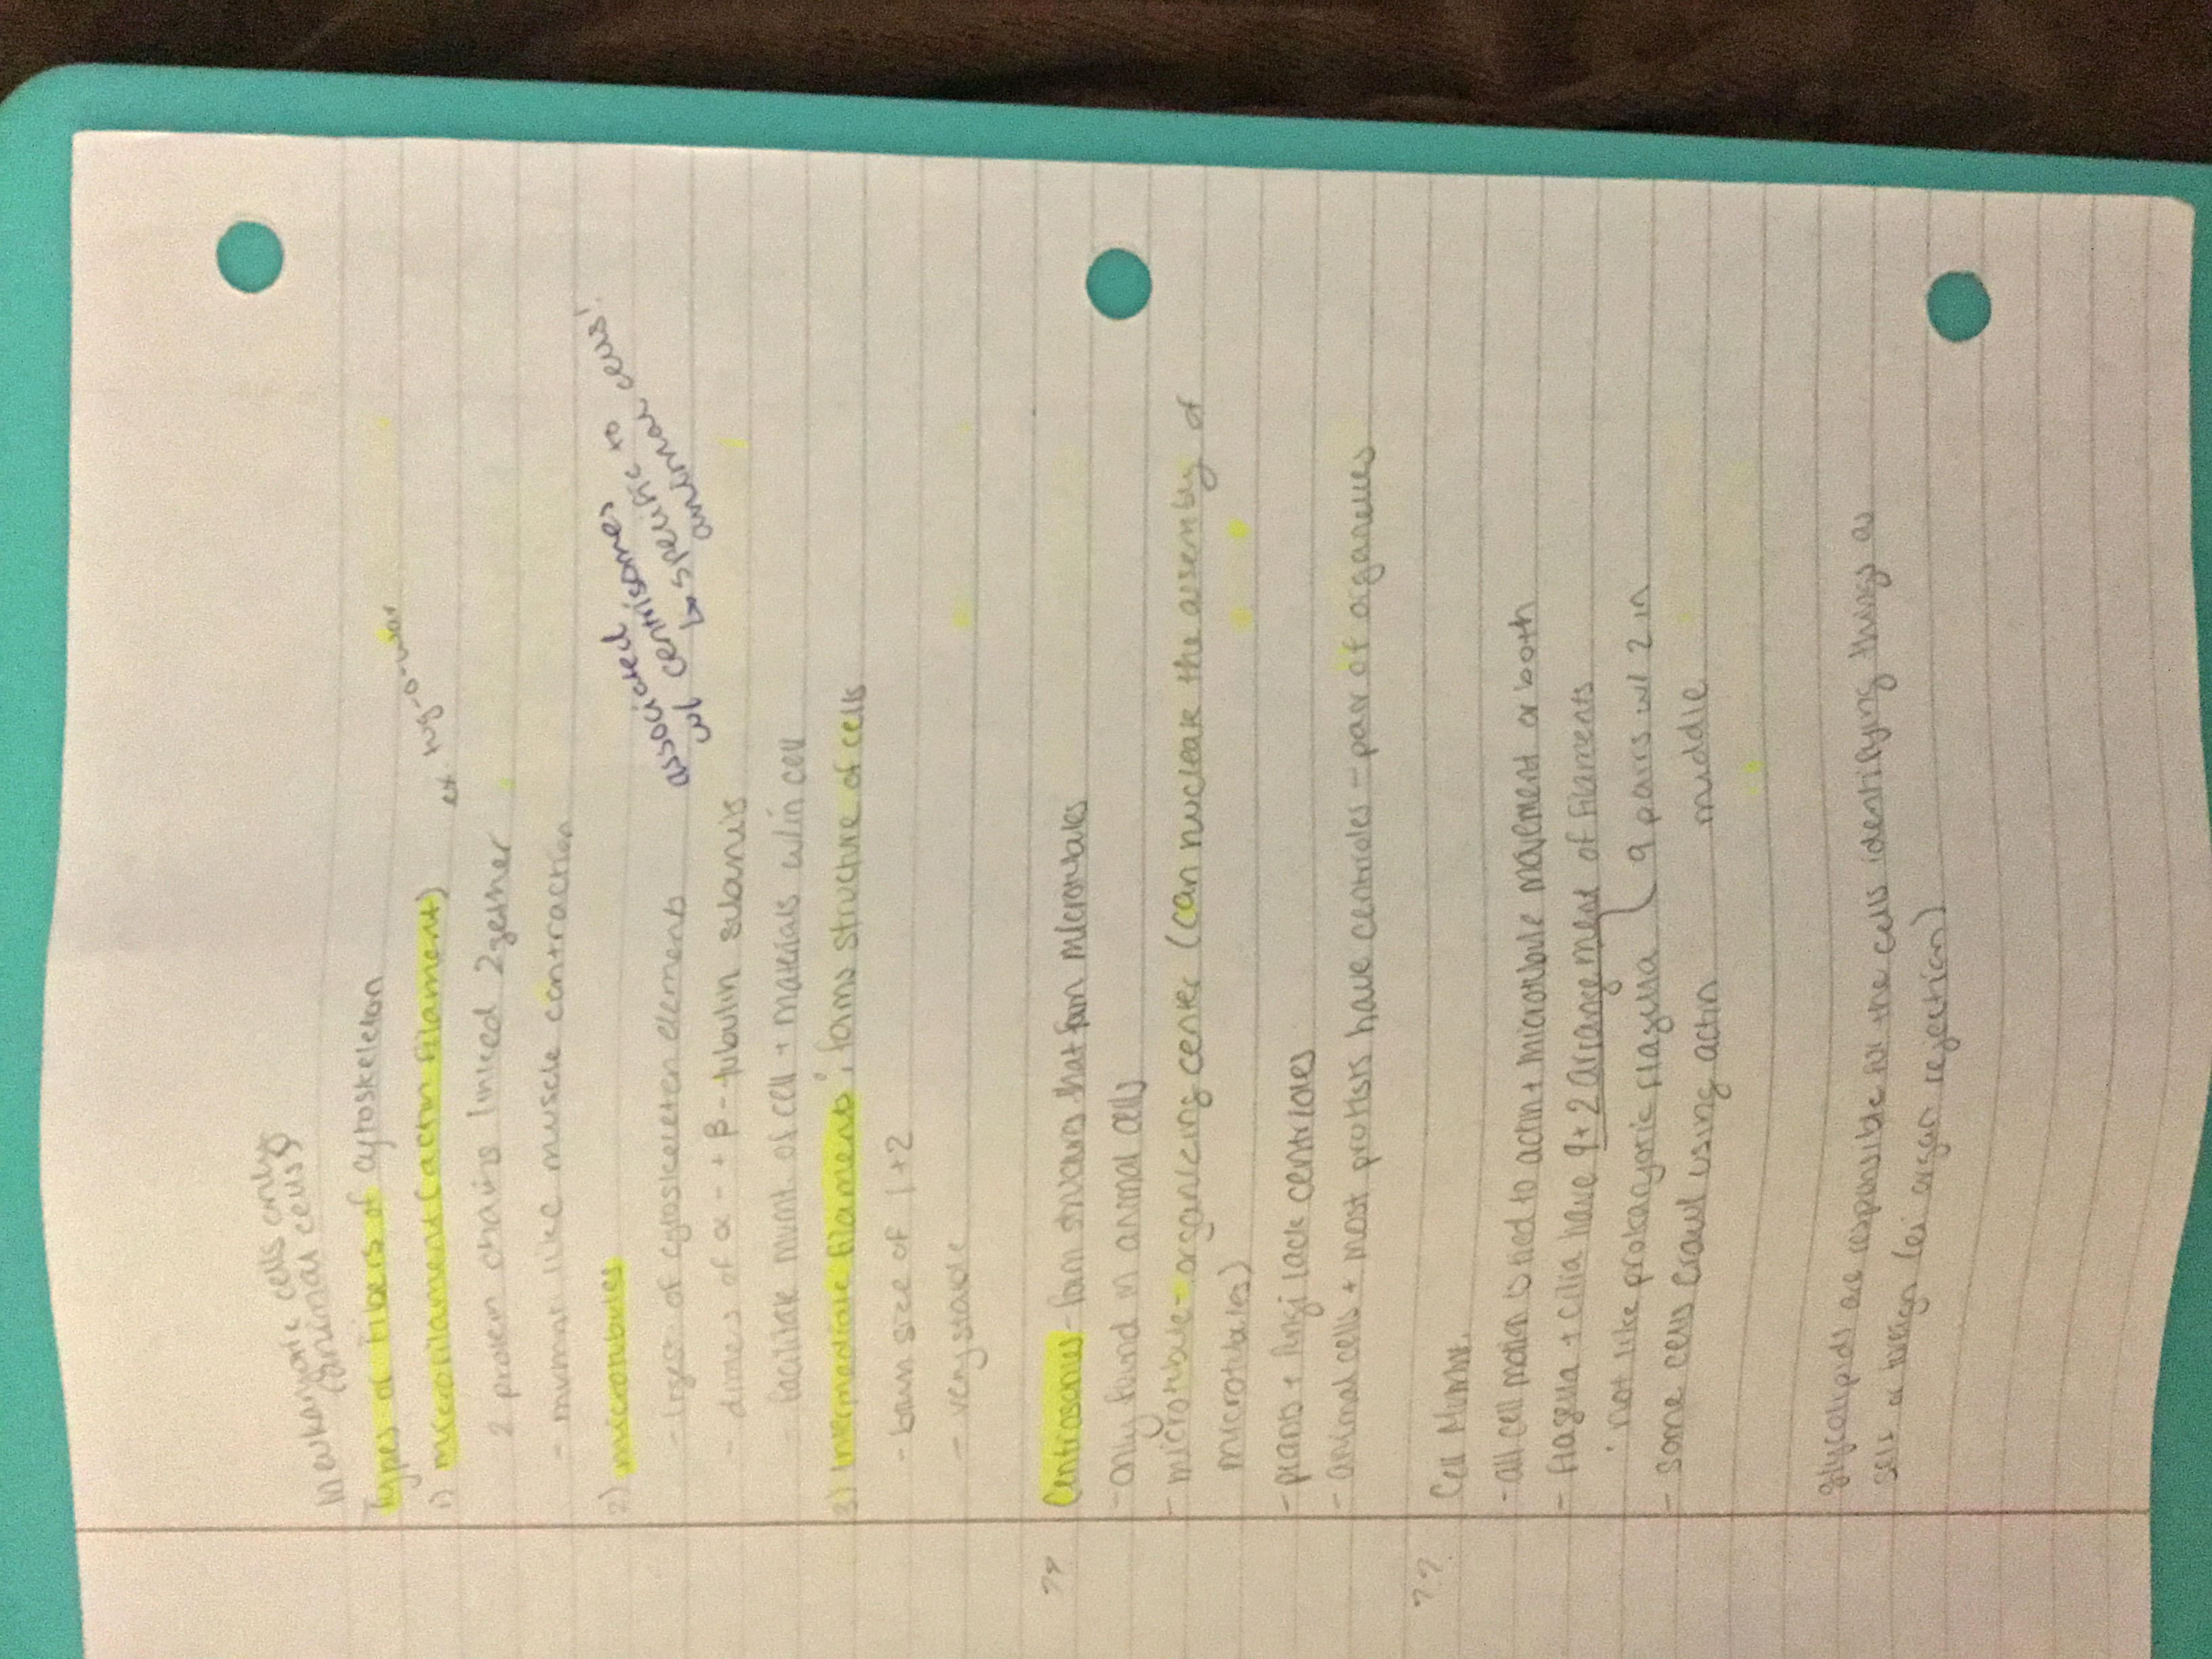 in eukaryotic cells only
(animal cells)
Types of Fibers of cytoskeleton
1) microfilament (actin filament) ex tug-o-war
2 protein chains linked 2gether
- mvmnt like muscle contraction
2) microtubules
associated
w/ centrisomes
to specific to
animal cells!
- lrgest of cytoskeleton elements
- dimers of α- + β-tubulin subunits
- facilitate mvmt. of cell + materials w/in cell
3) Intermediate filaments; forms structure of cells
- btwn size of 1+2
- very stable
?? Centrosomes - barrel structures that form microtubules
- only found in animal cells
- microtubule-organizing center (can nucleate the assembly of
microtubules)
- plants + fungi lack centrioles
- animal cells + most protists have centrioles - pair of organelles
?? Cell Mvmnt.
- all cell motion is tied to actin + microtubule movement or both
- flagella + cilia have 9+2 arrangement of filaments
not like prokaryotic flagella ( 9 pairs w/ 2 in
middle
- some cells crawl using actin
glycolipids are responsible for the cells identifying things as
self or foreign (ei organ rejection)